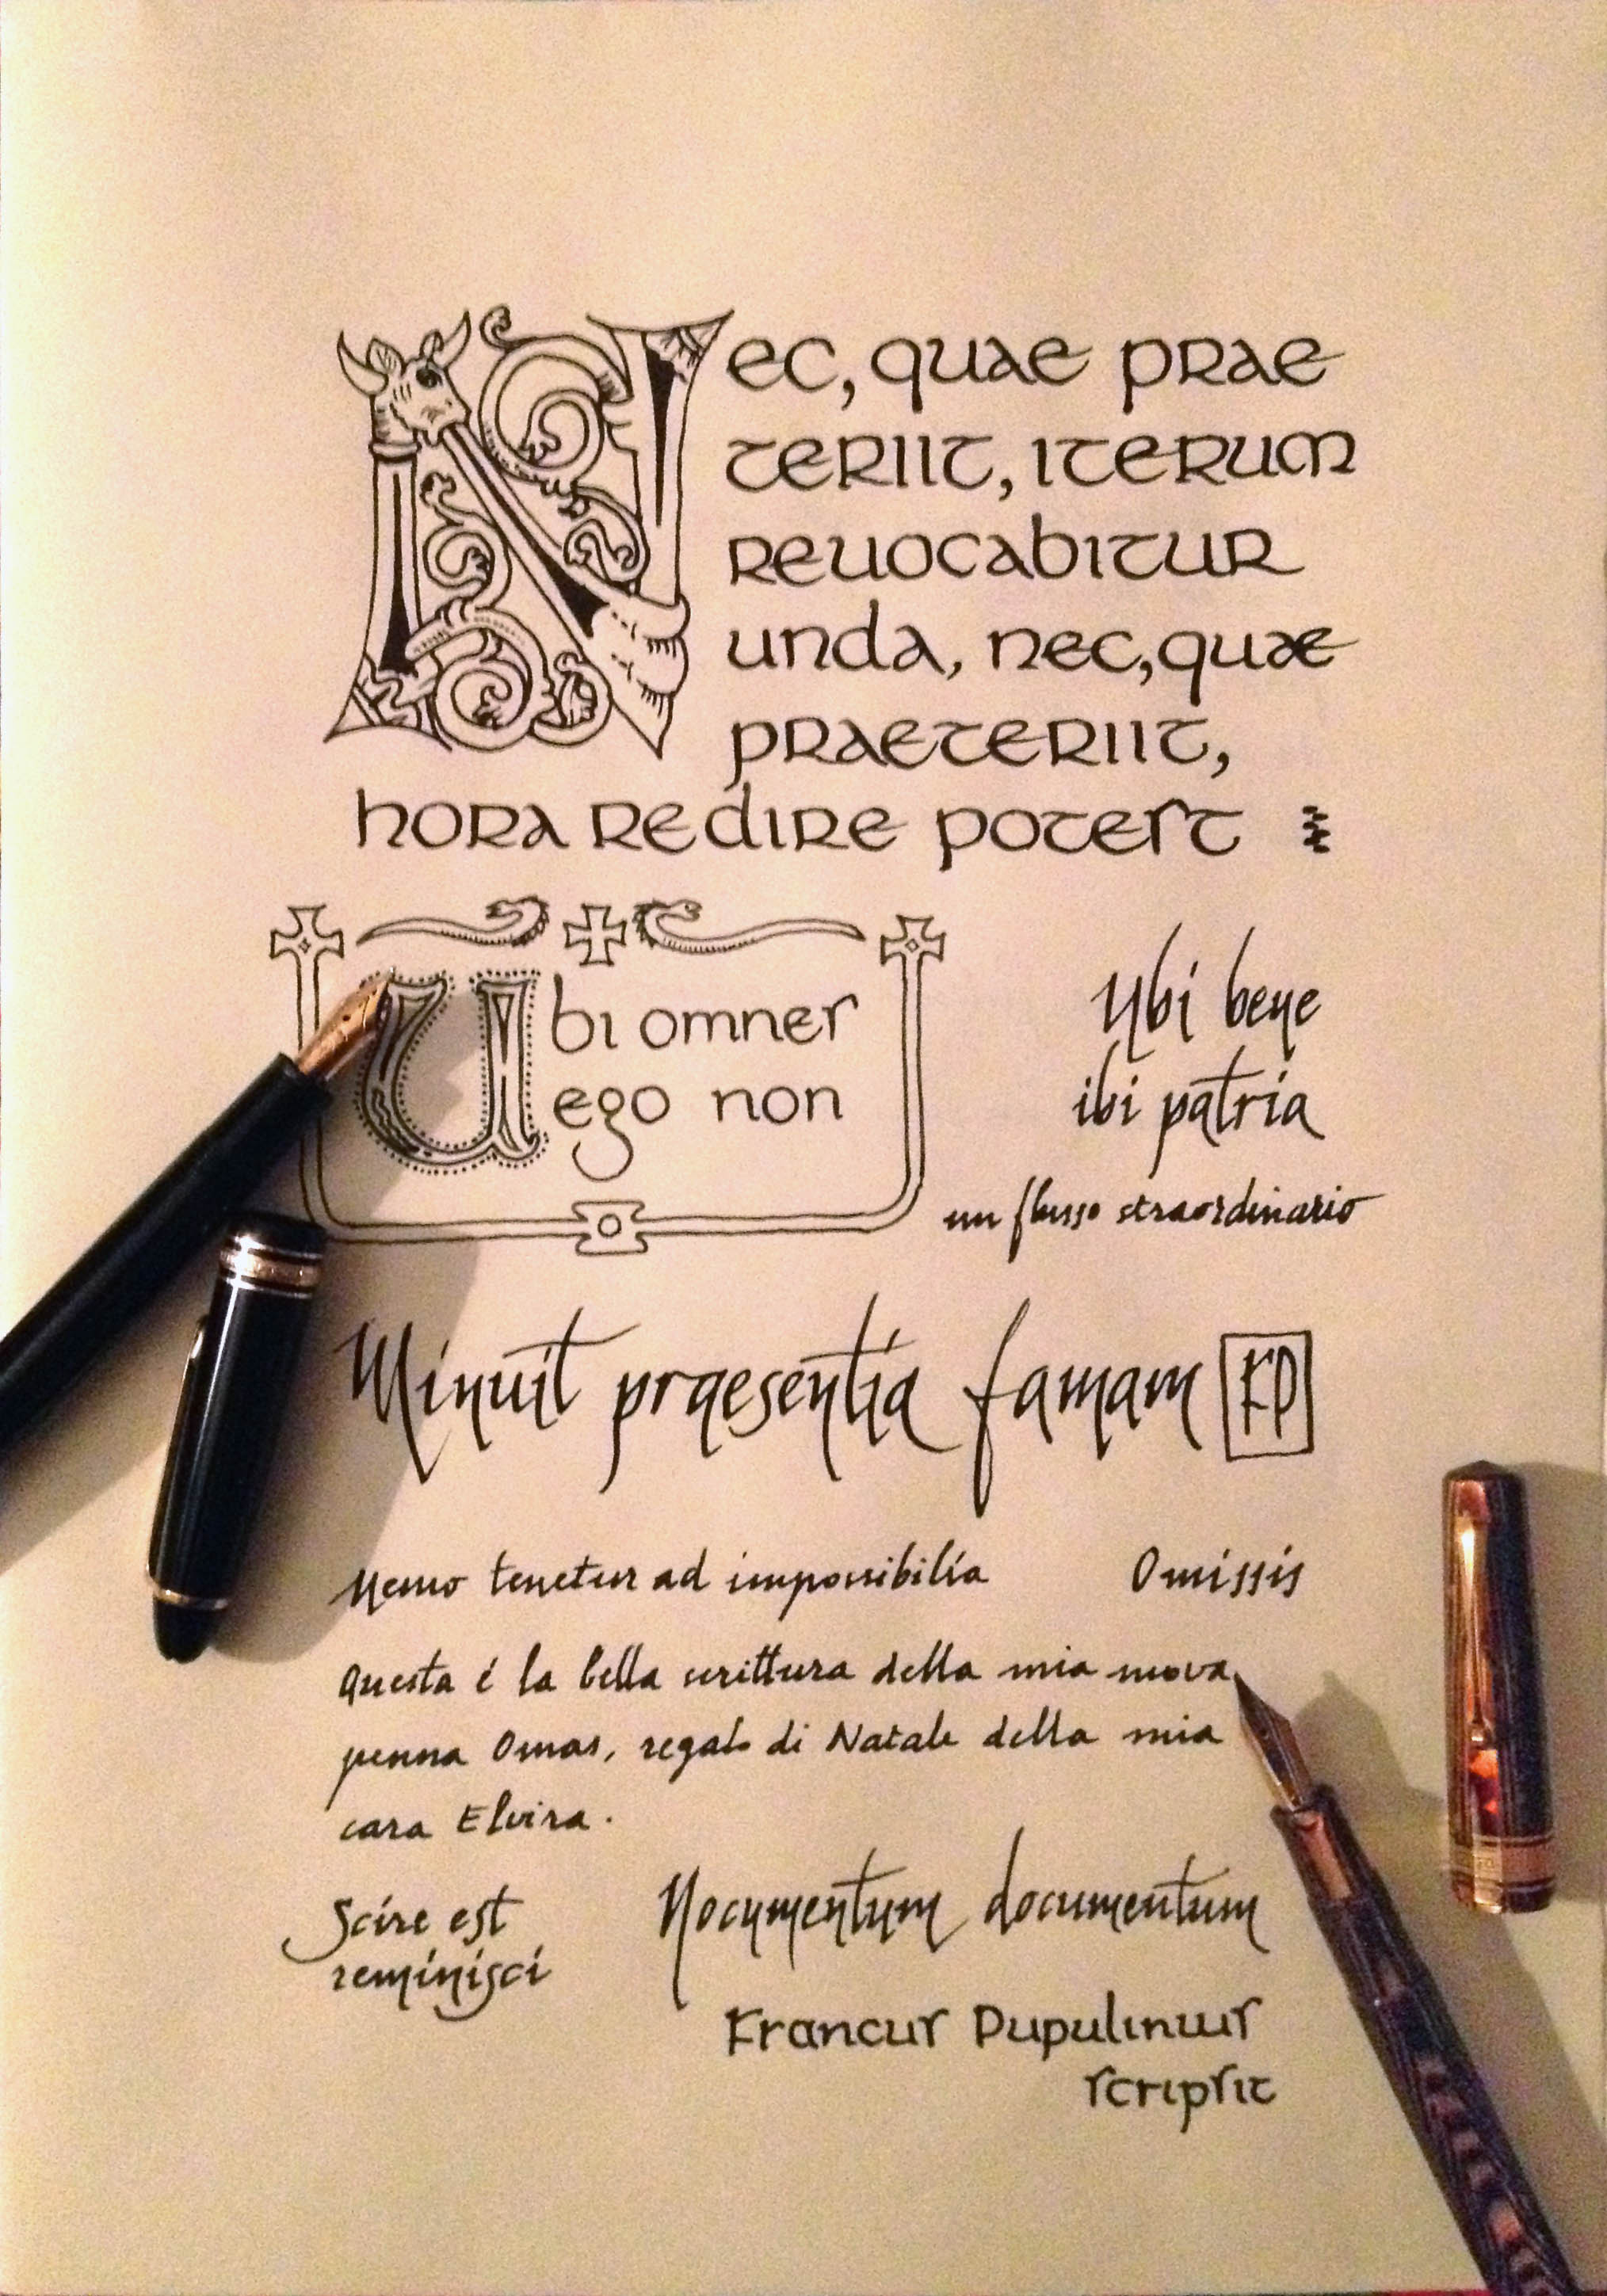 Nec, quae prae
teriit, iterum
reuocabitur
unda, nec, quæ
praeteriit,
hora redire potest
Ubi omnes
ego non
Ubi bene
ibi patria
un flusso straordinario
Minuit praesentia famam FP
Nemo tenetur ad impossibilia
Omissis
Questa é la bella scrittura della mia nuova
penna Omas, regalo di Natale della mia
cara Elvira.
Scire est
reminisci
Nocumentum documentum
Francus Pupulinus
scripsit